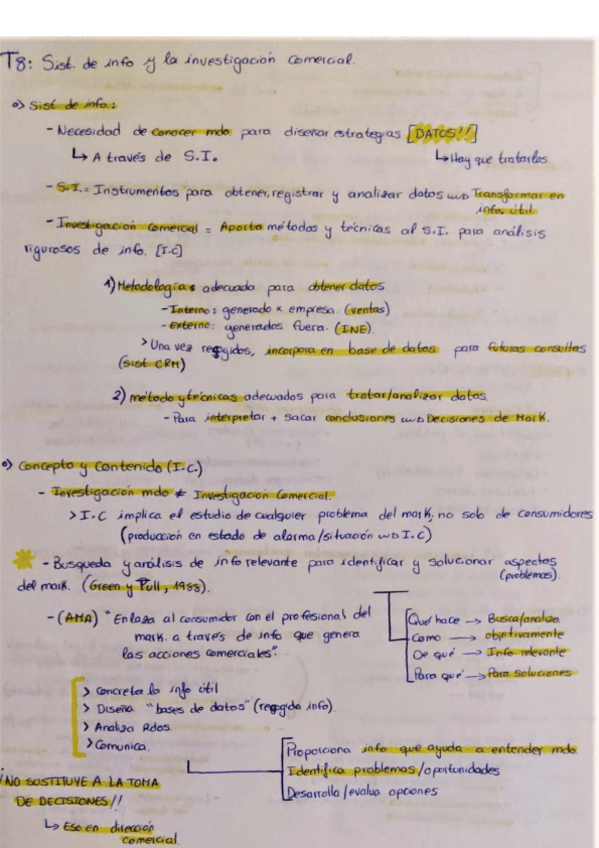 T8: Sist. de info y la investigación comercial.
o) Sist de info:
- Necesidad de conocer mdo para diseñar estrategias [DATOS!!]
↳ A través de S.I. ↳ Hay que tratarlos
- S.I. = Instrumentos para obtener, registrar y analizar datos → Transformar en
info. útil
- Investigación comercial = Aporta métodos y técnicas al S.I. para análisis
rigurosos de info. [I.C]
1) Metodologías adecuada para obtener datos
- Interno: generado x empresa. (ventas)
- Externo: generados fuera. (INE).
> Una vez recogidos, incorpora en base de datos para futuras consultas
(Sist CRM)
2) método y técnicas adecuados para tratar/analizar datos.
- Para interpretar + sacar conclusiones → Decisiones de Mark.
o) Concepto y contenido (I.C.)
- Investigación mdo ≠ Investigación Comercial.
> I.C implica el estudio de cualquier problema del mark, no solo de consumidores
(producción en estado de alarma/situación → I.C)
- Busqueda y análisis de info relevante para identificar y solucionar aspectos
(problemas).
del mark. (Green y Tull, 1988).
- (AMA) "Enlaza al consumidor con el profesional del
mark. a través de info que genera
las acciones comerciales".
Qué hace → Busca/analiza
Como → objetivamente
De qué → Info relevante
Para qué → Para soluciones
> Concreta la info útil
> Diseña "bases de datos" (recogida info).
> Analiza Rdos.
> Comunica.
Proporciona info que ayuda a entender mdo
Identifica problemas/oportunidades
Desarrolla/evalua opciones
¡NO SUSTITUYE A LA TOMA
DE DECISIONES!!
↳ Eso en dirección
comercial.